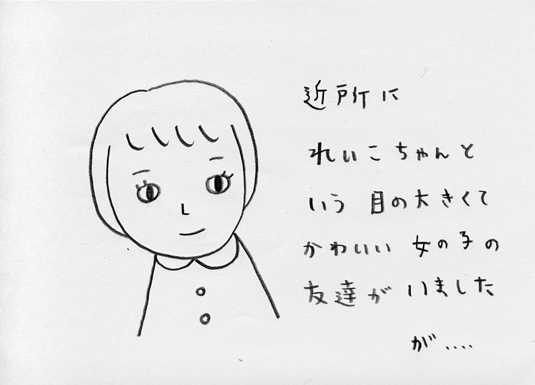 近所に
れいこちゃんと
いう 目の大きくて
かわいい 女の子の
友達が いました
が....